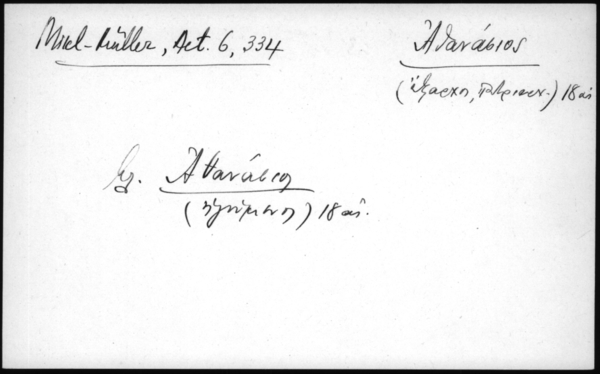 Mikl-Müller, Act. 6, 334
Ἀθανάσιος
(ἔξαρχος, πατριαρχ.) 18 αἰ
Ἀθανάσιος
(ἡγούμενος) 18 αἰ.